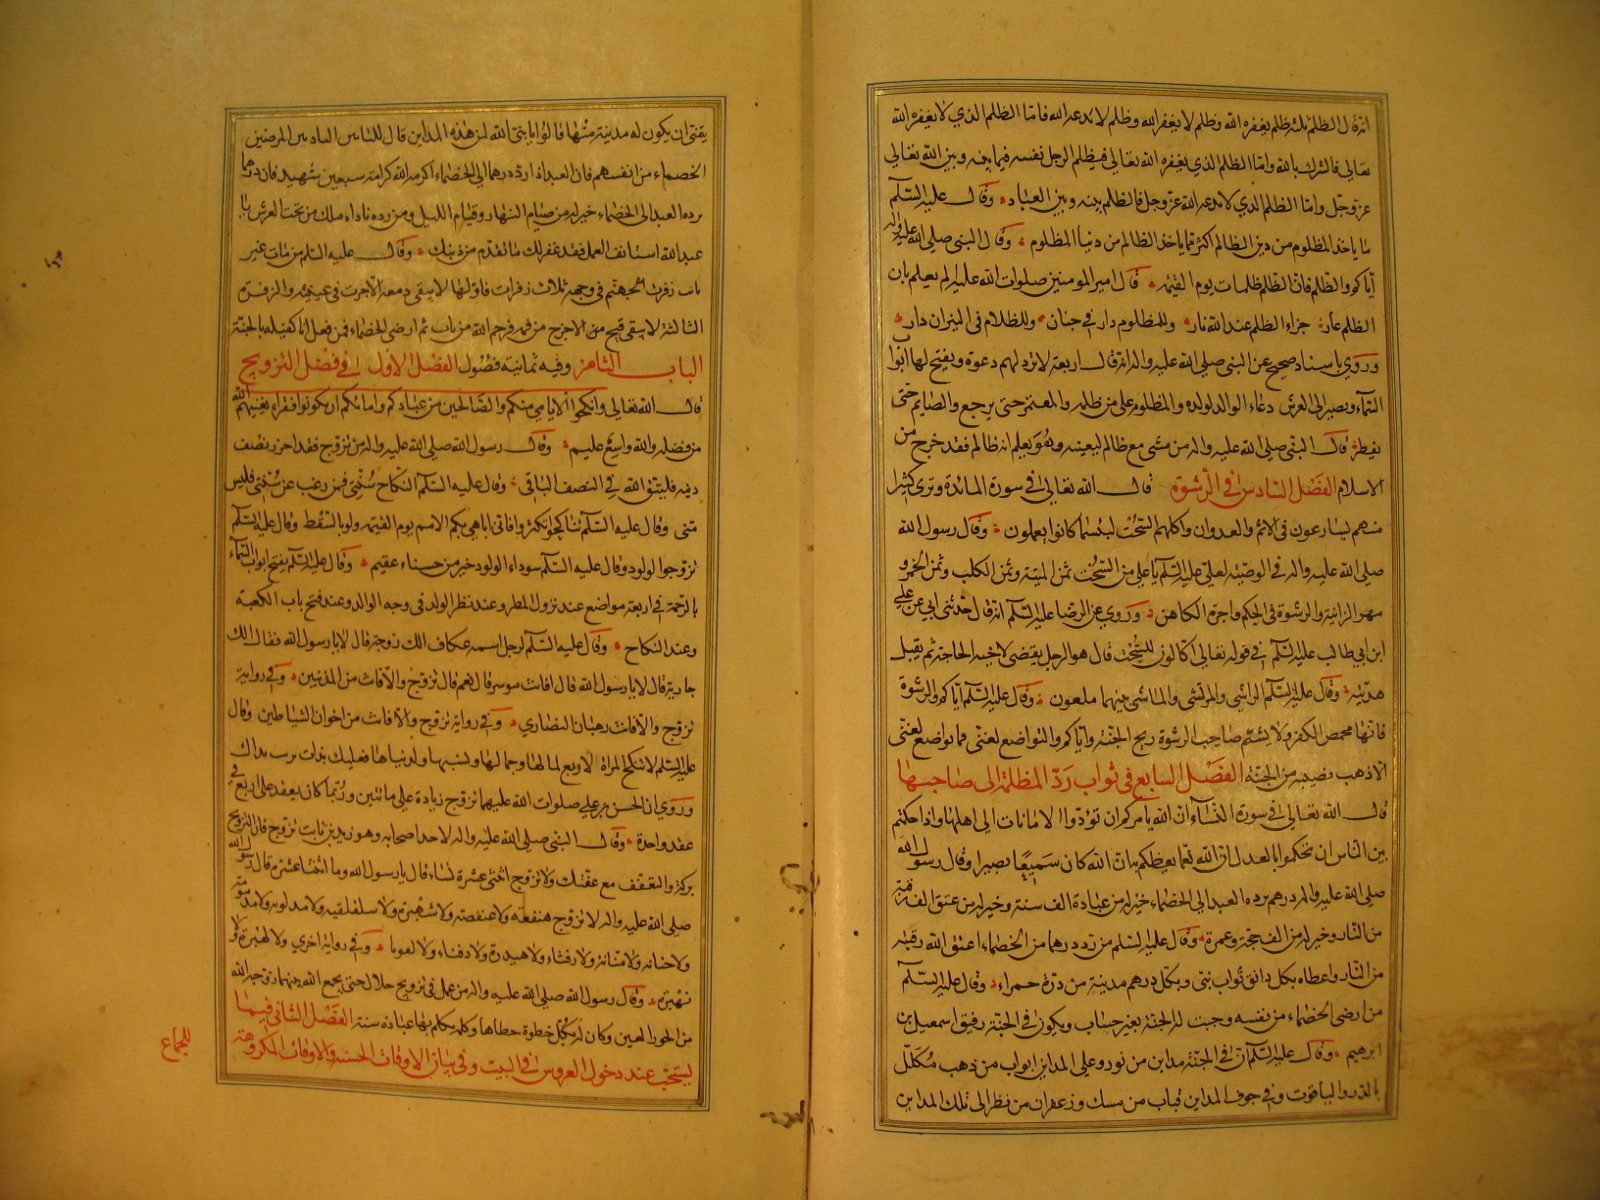 انه قال الظلم ثلثة ظلم يغفره الله وظلم لا يغفره الله وظلم لا يدعه الله فاما الظلم الذي لا يغفره الله
تعالى فالشرك بالله واما الظلم الذي يغفره الله تعالى فيظلم الرجل نفسه فيما بينه وبين الله تعالى
عز وجل واما الظلم الذي لا يدعه الله عز وجل فالظلم بينه وبين العباد وقال عليه السلم
ما ياخذ المظلوم من دين الظالم اكثر مما ياخذ الظالم من دنيا المظلوم وقال النبي صلى الله عليه واله
اياكم والظلم فان الظلم ظلمات يوم القيمة قال امير المومنين صلوات الله عليه الم يعلم بان
الظلم عار جزاء الظلم عند الله نار وللمظلوم دار في جنان وللظلام في الميزان دار
وروي باسناد صحيح عن النبي صلى الله عليه واله انه قال اربعة لا ترد لهم دعوة ويفتح لها ابواب
السماء ويصير الى العرش دعاء الوالد لولده والمظلوم على من ظلمه والمعتمر حتى يرجع والصايم حتى
يفطر قال النبي صلى الله عليه واله من مشى مع ظالم ليعينه وهو يعلم انه ظالم فقد خرج من
الاسلام الفصل السادس في الرشوة قال الله تعالى في سورة المائدة وترى كثيرا
منهم يسارعون في الاثم والعدوان واكلهم السحت لبئسما كانوا يعملون وقال رسول الله
صلى الله عليه واله في الوصية لعلي عليه السلم يا علي من السحت ثمن الميتة وثمن الكلب وثمن الخمر و
مهر الزانية والرشوة في الحكم واجرة الكاهن وروي عن الرضا عليه السلم انه قال حدثني ابي عن علي
ابن ابي طالب عليه السلم في قوله تعالى اكالون للسحت قال هو الرجل يقضي لاخيه الحاجة ثم يقبل
هديته وقال عليه السلم الراشي والمرتشي والماشي بينهما ملعون وقال عليه السلم اياكم والرشوة
فانها محمص الكفر ولا يشم صاحب الرشوة ريح الجنة واياكم والتواضع لغني فما تواضع لغني
الا ذهب نصيبه من الجنة الفصل السابع في ثواب رد المظلمة الى صاحبها
قال الله تعالى في سورة النساء ان الله يامركم ان تؤدوا الامانات الى اهلها واذا حكمتم
بين الناس ان تحكموا بالعدل ان الله نعما يعظكم به ان الله كان سميعا بصيرا وقال رسول الله
صلى الله عليه واله درهم يرده العبد الى الخصماء خير له من عبادة الف سنة وخير له من عتق الف رقبة
من النار وخير له من الف حجة وعمرة وقال عليه السلم من رد درهما من الخصماء اعتق الله رقبته
من النار واعطاه بكل دانق ثواب نبي وبكل درهم مدينة من درة حمراء وقال عليه السلم
من ارضى الخصماء من نفسه وجبت له الجنة بغير حساب ويكون في الجنة رفيق اسمعيل بن
ابرهيم وقال عليه السلم ان في الجنة مداين من نور وعلى المداين ابواب من ذهب مكلل
بالدر والياقوت وفي جوف المداين قباب من مسك وزعفران من نظر الى تلك المداين
يتمنى ان يكون له مدينة منها قالوا يا نبي الله لمن هذه المداين قال للتائبين النادمين المرضين
الخصماء من انفسهم فان العبد اذا رد درهما الى الخصماء اكرمه الله كرامة سبعين شهيد فان درهما
يرده العبد الى الخصماء خير له من صيام النهار وقيام الليل ومن رده ناداه ملك من تحت العرش يا
عبد الله استانف العمل فقد غفر لك ما تقدم من ذنبك وقال عليه السلم من مات غير
تائب زفرت جهنم في وجهه ثلاث زفرات فاولها لا يبقى دمعة الا جرت في عينيه والزفرة
الثالثة لا يبقى قيح من الاخرج من فمه فرحم الله من تاب ثم ارضى الخصماء فمن فعل انا كفيله بالجنة
الباب الثامن وفيه ثمانية فصول الفصل الاول في فضل التزويج
قال الله تعالى وانكحوا الايامى منكم والصالحين من عبادكم وامائكم ان يكونوا فقراء يغنيهم الله
من فضله والله واسع عليم وقال رسول الله صلى الله عليه واله من تزوج فقد احرز نصف
دينه فليتق الله في النصف الباقي وقال عليه السلم النكاح سنتي فمن رغب عن سنتي فليس
مني وقال عليه السلم تناكحوا تكثروا فاني اباهي بكم الامم يوم القيمة ولو بالسقط وقال عليه السلم
تزوجوا الولود وقال عليه السلم سوداء الولود خير من حسناء عقيم وقال عليه السلم يفتح ابواب السماء
بالرحمة في اربعة مواضع عند نزول المطر وعند نظر الولد في وجه الوالد وعند فتح باب الكعبة
وعند النكاح وقال عليه السلم لرجل اسمه عكاف الك زوجة قال لا يا رسول الله فقال الك
جارية قال لا يا رسول الله قال افانت موسر قال نعم قال تزوج والا فانت من المذنبين وفي رواية
تزوج والا فانت رهبان النصارى وفي رواية تزوج والا فانت من اخوان الشياطين وقال
عليه السلم لا تنكح المراة لاربع لمالها وجمالها ولنسبها ولدنياها فعليك بذات تربت يداك
وروي ان الحسن بن علي صلوات الله عليهما تزوج زيادة على مائتين وربما كان يعقد على اربع في
عقد واحدة وقال النبي صلى الله عليه واله لاحد اصحابه وهو زيد بن ثابت تزوج فان التزويج
بركة والتعفف مع عفتك ولا تزوج اثنتي عشرة نساء قال يا رسول الله وما اثنتا عشرة قال رسول الله
صلى الله عليه واله لا تزوج هنفعة ولا عنفصة ولا شهبرة ولا سلقلقية ولا مذبوبة ولا مذمومة
ولا حنانة ولا منانة ولا رفثاء ولا هيدرة ولا دفناء ولا لغوبا وفي رواية اخرى ولا لهبرة ولا
نهبرة وقال رسول الله صلى الله عليه واله من عمل في تزويج حلال حتى يجمع الله بينهما زوجه الله
من الحور العين وكان له بكل خطوة خطاها وكلمة يكلم بها عبادة سنة الفصل الثاني فيما
يستحب عند دخول العروس في البيت وفي بيان الاوقات الحسنة والاوقات المكروهة
للجماع